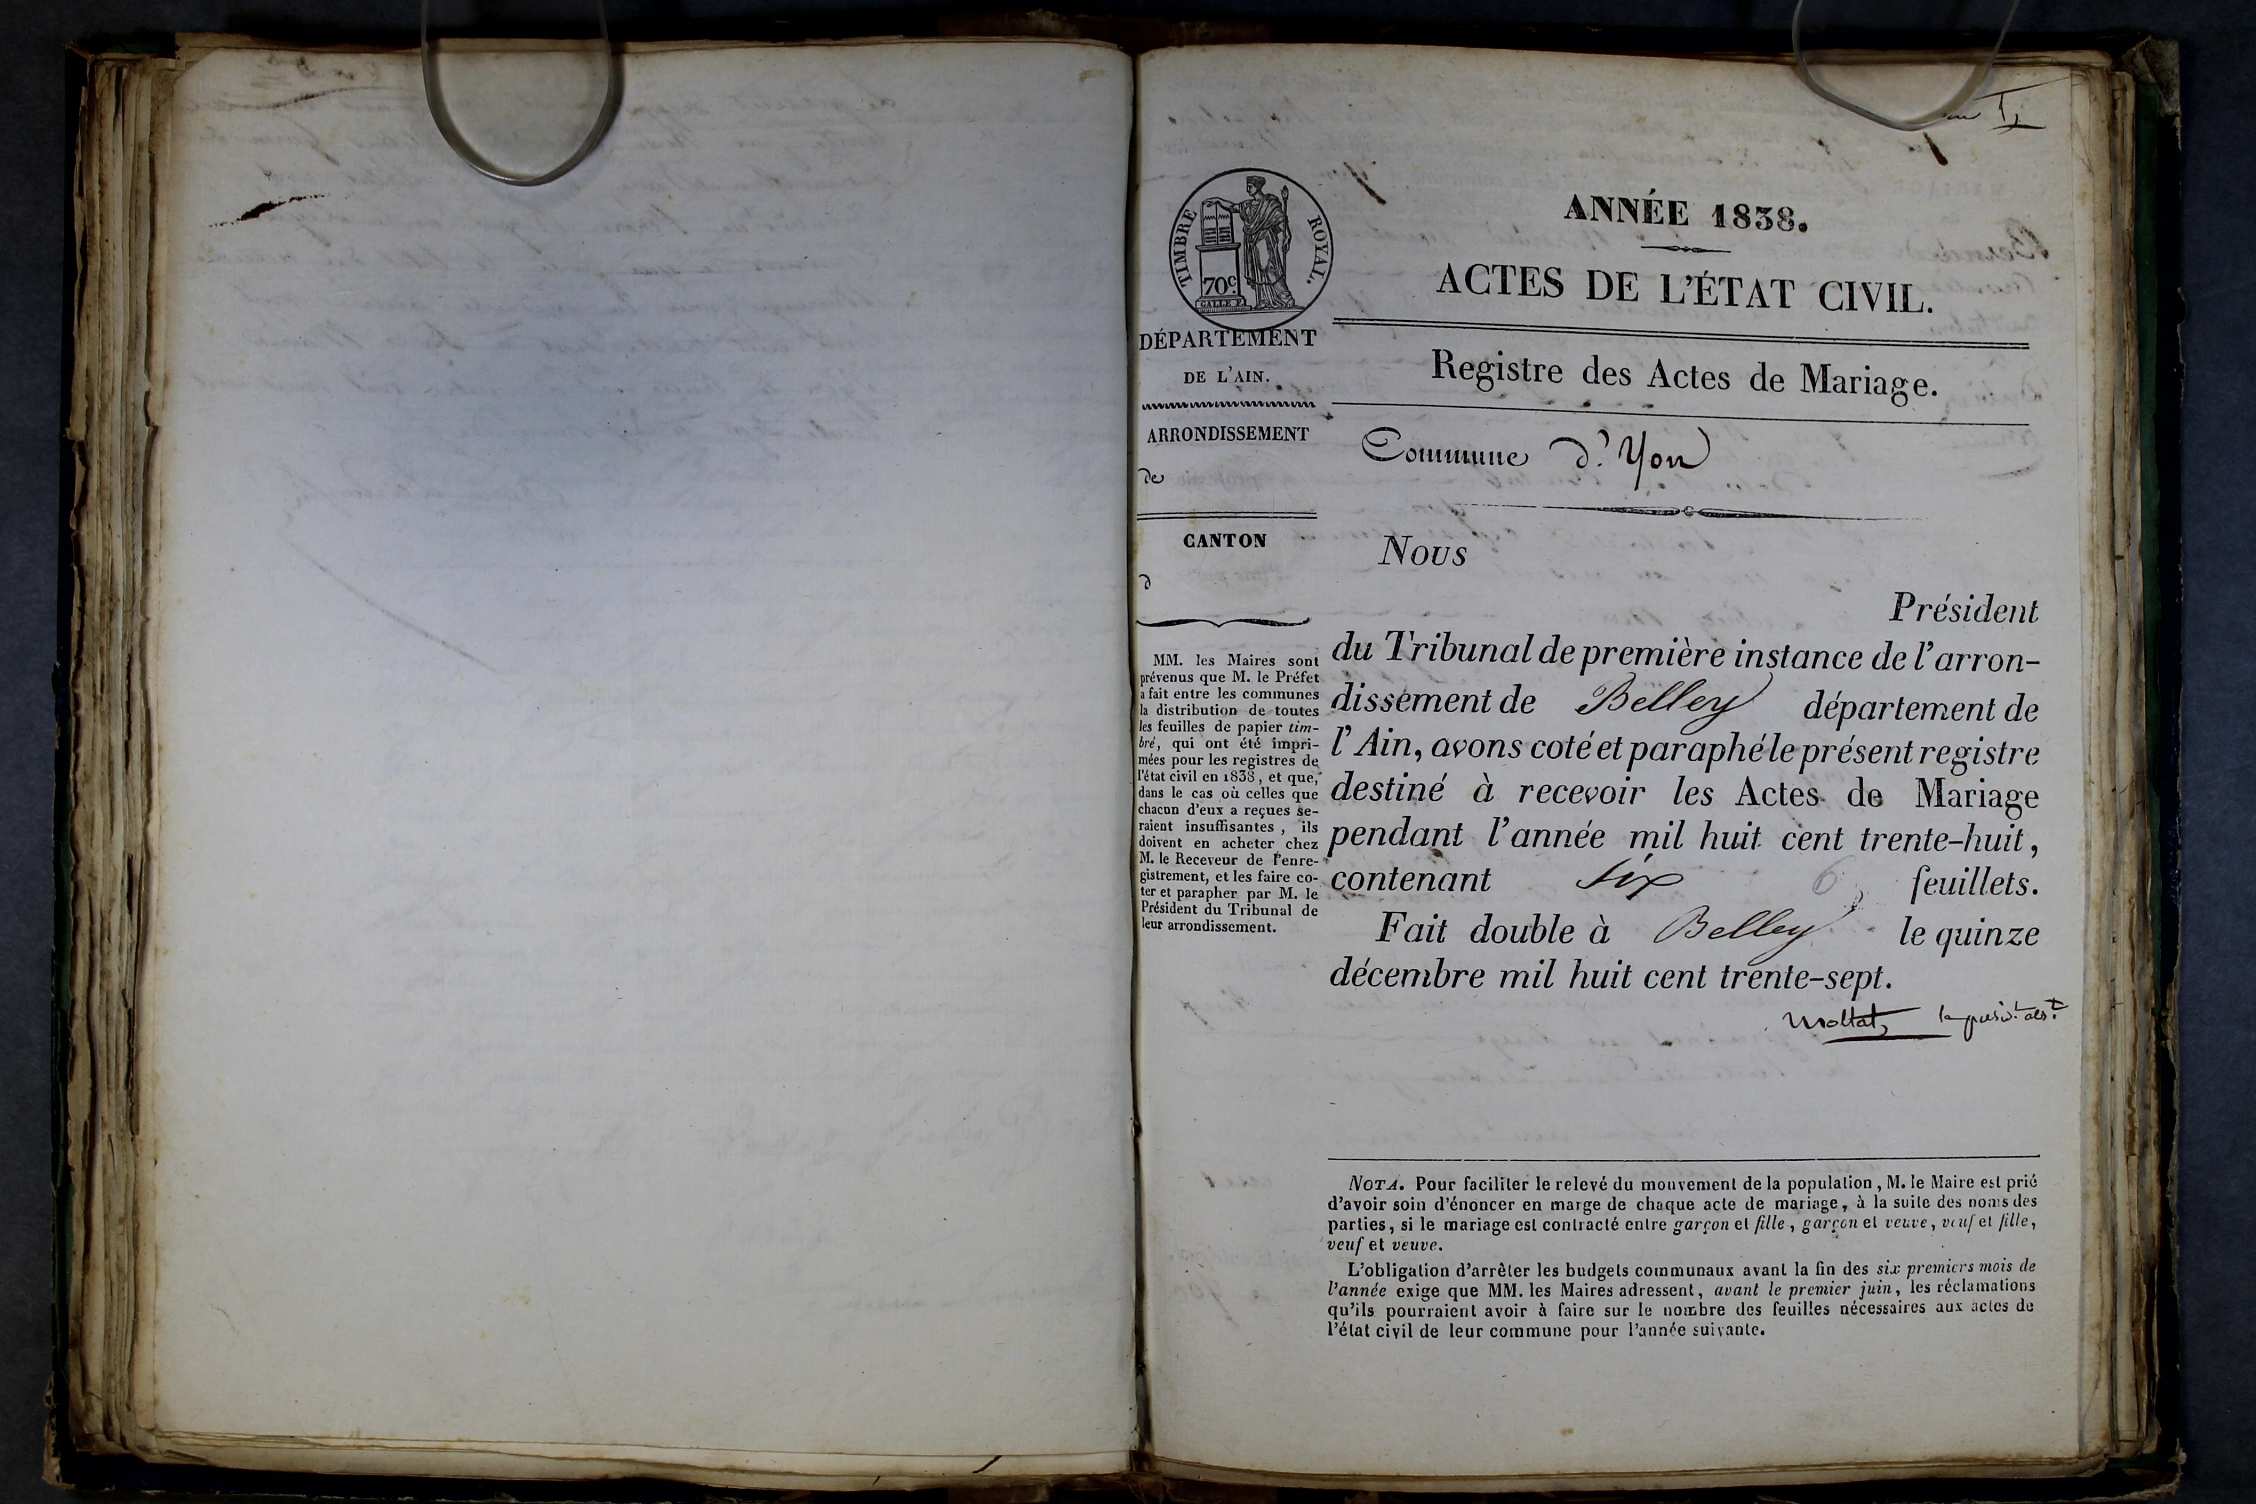 TIMBRE ROYAL.
70c.
GALLE F.
DÉPARTEMENT
DE L'AIN.
ARRONDISSEMENT
de
CANTON
d
MM. les Maires sont
prévenus que M. le Préfet
a fait entre les communes
la distribution de toutes
les feuilles de papier tim-
bré, qui ont été impri-
mées pour les registres de
l'état civil en 1838, et que,
dans le cas où celles que
chacun d'eux a reçues se-
raient insuffisantes, ils
doivent en acheter chez
M. le Receveur de l'enre-
gistrement, et les faire co-
ter et parapher par M. le
Président du Tribunal de
leur arrondissement.
ANNÉE 1838.
ACTES DE L'ÉTAT CIVIL.
Registre des Actes de Mariage.
Commune d'Yon
Nous
Président
du Tribunal de première instance de l'arron-
dissement de Belley département de
l'Ain, avons coté et paraphé le présent registre
destiné à recevoir les Actes de Mariage
pendant l'année mil huit cent trente-huit,
contenant six 6 feuillets.
Fait double à Belley le quinze
décembre mil huit cent trente-sept.
NOTA. Pour faciliter le relevé du mouvement de la population, M. le Maire est prié
d'avoir soin d'énoncer en marge de chaque acte de mariage, à la suite des noms des
parties, si le mariage est contracté entre garçon et fille, garçon et veuve, veuf et fille,
veuf et veuve.
L'obligation d'arrêter les budgets communaux avant la fin des six premiers mois de
l'année exige que MM. les Maires adressent, avant le premier juin, les réclamations
qu'ils pourraient avoir à faire sur le nombre des feuilles nécessaires aux actes de
l'état civil de leur commune pour l'année suivante.